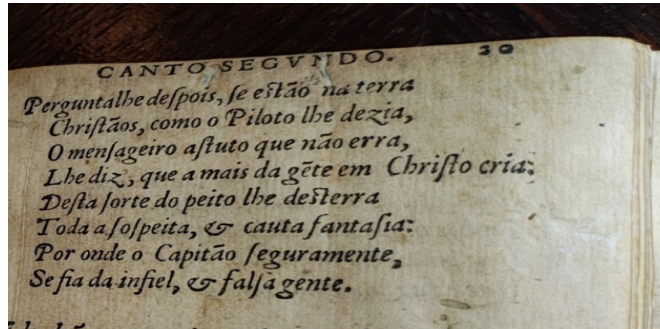 CANTO SEGVNDO. 20
Perguntalhe deſpois, ſe eſtão na terra
Chriſtãos, como o Piloto lhe dezia,
O menſageiro aſtuto que não erra,
Lhe diz, que a mais da gẽte em Chriſto cria:
Deſta ſorte do peito lhe deſterra
Toda a ſoſpeita, & cauta fantaſia:
Por onde o Capitão ſeguramente,
Se fia da infiel, & falſa gente.